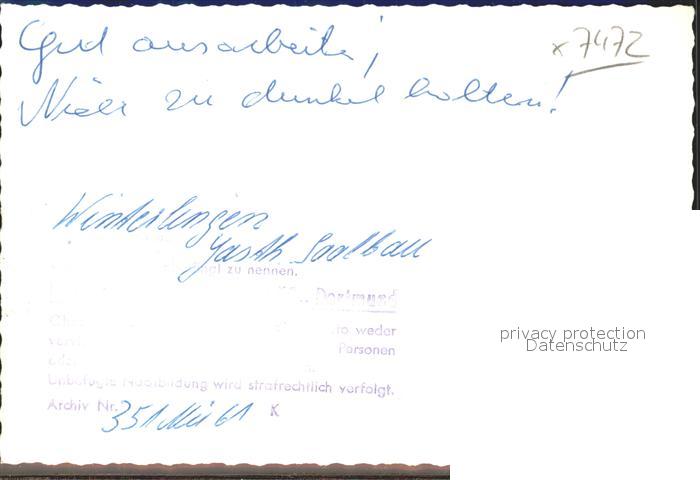 Gut ausarbeiten;
x7472
Nicht zu dunkel halten!
Winterlingen
Gasth. Saalbau
zu nennen.
Dortmund
weder
Personen
oder
Unbefugte Nachbildung wird strafrechtlich verfolgt.
Archiv Nr. 351 61 K
privacy protection
Datenschutz